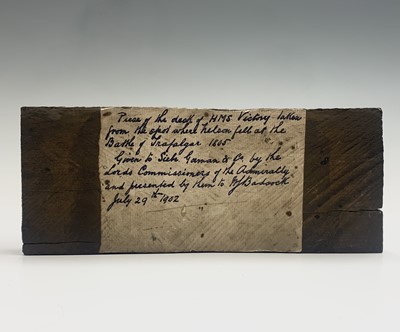 Piece of the deck of HMS Victory taken
from the spot where Nelson fell at the
Battle of Trafalgar 1805
Given to Siebe Gorman & Co by the
Lords Commissioners of the Admiralty
and presented by them to W J Badcock
July 29th 1902